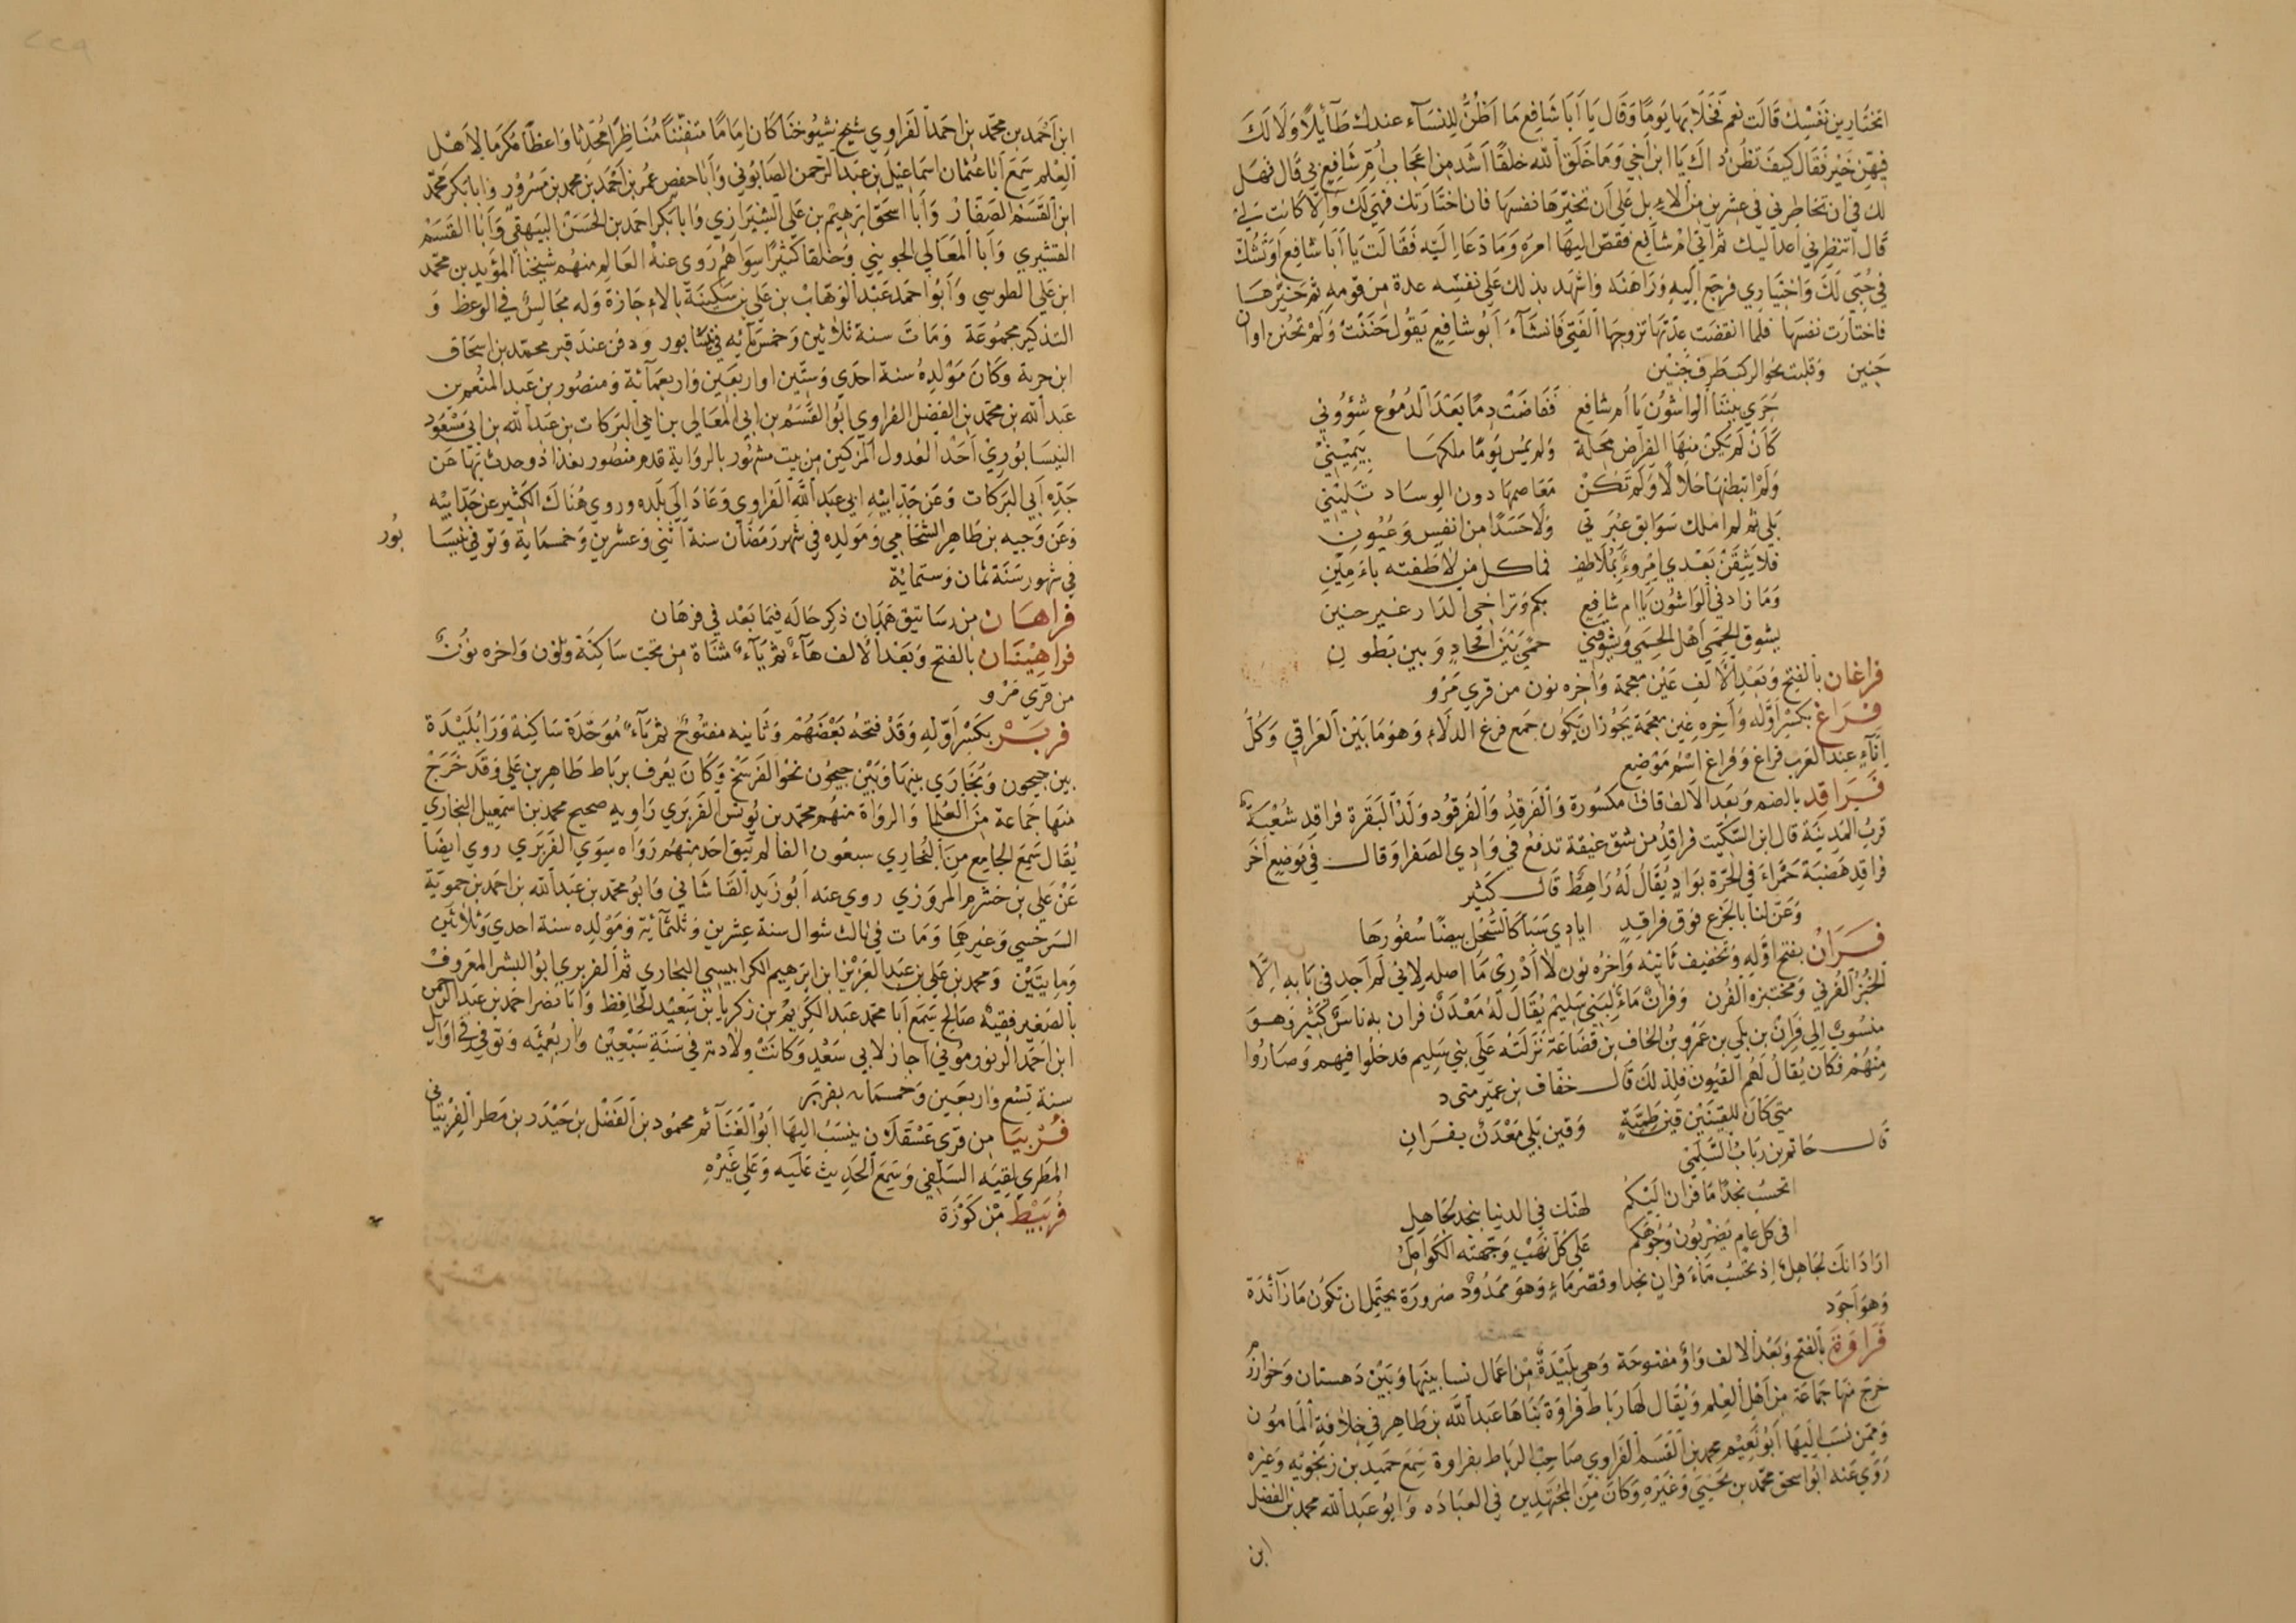 اتختارين نفسك قالت نعم فخلا بها يوما وقال يا أبا شافع ما أظن للنساء عندك طايلا ولا لك
فيهن خير فقال كيف تظن ذاك يا ابن أخي وما خلق الله خلقا أشد من اعجاب أم شافع بي قال فهل
لك في ان تخاطرني في عشرين من الابل على أن تخيرها نفسها فان اختارتك فهي لك والا كانت لي
قال انتظرني أعد اليك ثم أتى أم شافع فقص اليها امره وما دعا اليه فقالت يا أبا شافع أو تشك
في حبي لك واختياري فرجع اليه وراهنه واشهد بذلك على نفسه عدة من قومه ثم خيرها
فاختارت نفسها فلما انقضت عدتها تزوجها الفتى فانشاء أبو شافع يقول حننت ولم تحنن اوان
حنين وقلبت نحو الركب طرف حنين
جرى بيننا الواشون يا أم شافع ففاضت دما بعد الدموع شؤوني
كأن لم يكن منها الفراض محلة ولم يمس يوما ملكها بيميني
ولم اتبطنها حلالا ولم تكن معاصمها دون الوساد تليني
بلى ثم لم املك سوابق عبرتي ولا حسدا من انفس وعيون
فلا يثقن بعدي امروء بملاطف فما كل من لاطفته بامين
وما زادني الواشون يا ام شافع بكم وتراخي الدار غير حنين
يشوق الحمى أهل الحمى ويشوقني حمى بين أفخاد وبين بطون
فراغان بالفتح وبعد الالف غين معجمة واخره نون من قرى مرو
فراغ بكسر أوله وآخره غين معجمة يجوز ان يكون جمع فرغ الدلاء وهو ما بين العراقي وكل
اناء عند العرب فراغ وفراغ اسم موضع
فراقد بالضم وبعد الالف قاف مكسورة والفرقد والفرقود ولد البقرة فراقد شعبة
قرب المدينة قال ابن السكيت فراقد من شق غيقة تدفع في وادي الصفرا وقال في موضع آخر
فراقد هضبة حمراء في الحرة بواد يقال له راهط قال كثير
وعن لنا بالجزع فوق فراقد ايادي سبا كالسحل بيضا سفورها
فران بفتح أوله وتخفيف ثانيه واخره نون لا أدري ما اصله لاني لم اجد في بابه الا
الخبز الفرني ومختبزه الفرن وفران ماء لبني سليم يقال له معدن فران به ناس كثير وهو
منسوب الى فران بن بلي بن عمرو بن الحاف بن قضاعة نزلته على بني سليم فدخلوا فيهم وصاروا
منهم فكان يقال لهم القيون فلذلك قال خفاف بن عمير
متى كان للقينين قين طمية وقين بلي معدن بفران
قال حاتم بن رباب السلمي
اتحسب نجدا ما فران اليكم لهنك في الدنيا بنجد لجاهل
افي كل عام يضربون وجوهكم على كل نهب وجهته الكوامل
اراد انك لجاهل إذ تحسب ماء فران نجدا وقصر ماء وهو ممدود ضرورة يحتمل ان تكون ما زائدة
وهو أجود
فراوة بالفتح وبعد الالف واو مفتوحة وهي بليدة من اعمال نسا بينها وبين دهستان وخوارزم
خرج منها جماعة من أهل العلم ويقال لها رباط فراوة بناها عبد الله بن طاهر في خلافة المامون
وممن نسب اليها أبو نعيم محمد بن القسم الفراوي صاحب الرباط بفراوة سمع حميد بن زنجويه وغيره
روى عنه ابو اسحق محمد بن يحيى وغيره وكان من المجتهدين في العباده وابو عبد الله محمد بن الفضل
ابن
ابن أحمد بن محمد بن احمد الفراوي شيخ شيوخنا كان إماما متفننا مناظرا محدثا واعظا مكرما لأهل
العلم سمع أبا عثمان اسماعيل بن عبد الرحمن الصابوني وأبا حفص عمر بن أحمد بن محمد بن مسرور وابا بكر محمد
ابن القسم الصفار وأبا اسحق ابرهيم بن علي الشيرازي وابا بكر احمد بن الحسن البيهقي وأبا القسم
القشيري وأبا المعالي الجويني وخلقا كثيرا سواهم روى عنه العالم منهم شيخنا المؤيد بن محمد
ابن علي الطوسي وأبو احمد عبد الوهاب بن علي بن سكينة بالاجازة وله مجالس في الوعظ و
التذكير مجموعة ومات سنة ثلاثين وخمسمائه في نيشابور ودفن عند قبر محمد بن اسحاق
ابن خربة وكان مولده سنة احدى وستين او اربعين واربعمائة ومنصور بن عبد المنعم بن
عبد الله بن محمد بن الفضل الفراوي ابو القسم بن ابي المعالي بن ابي البركات بن عبد الله بن ابي مسعود
النيسابوري أحد العدول المزكين من بيت مشهور بالرواية قدم منصور بغداذ وحدث بها عن
جده أبي البركات وعن جد ابيه ابي عبد الله الفراوي وعاد الى بلده وروى هناك الكثير عن جد ابيه
وعن وجيه بن طاهر الشحامي ومولده في شهر رمضان سنة اثنى وعشرين وخمسماية وتوفي نيسا بور
في شهور سنة ثمان وستمائة
فراهان من رساتيق همدان ذكر حاله فيما بعد في فرهان
فراهينان بالفتح وبعد الالف هاء ثم ياء مثناة من تحت ساكنة ونون واخره نون
من قرى مرو
فربر بكسر أوله وقد فتحه بعضهم وثانيه مفتوح ثم باء موحدة ساكنة ورا بليدة
بين جيحون وبخارى بينها وبين جيحون نحو الفرسخ وكان يعرف برباط طاهر بن علي وقد خرج
منها جماعة من العلما والرواة منهم محمد بن يونس الفربري راويه صحيح محمد بن اسمعيل البخاري
يقال سمع الجامع من البخاري سبعون الفا لم يبق احد منهم رواه سوى الفربري روى ايضا
عن علي بن خشرم المروزي روى عنه أبو زيد القاشاني وابو محمد بن عبد الله بن احمد بن حموية
السرخسي وغيرهما ومات في ثالث شوال سنة عشرين وثلثمائة ومولده سنة احدى وثلاثين
ومايتين ومحمد بن علي بن عبد العزيز ابن ابرهيم الكرابيسي البخاري ثم الفربري ابو البشر المعروف
بالصغير فقيه صالح سمع أبا محمد عبد الكريم بن زكريا بن سعيد الحافظ وأبا نصر احمد بن عبد الرحمن
ابن احمد الريغدموني اجاز لابي سعد وكانت ولادته في سنة سبعين واربعمئه وتوفي في اوايل
سنة تسع واربعين وخمسمائه بفربر
فربيا من قرى عسقلان ينسب اليها ابو الغنائم محمود بن الفضل بن حيدر بن مطر الفربياني
المطري لقيه السلفي وسمع الحديث عليه وعلى غيره
فربيط من كورة